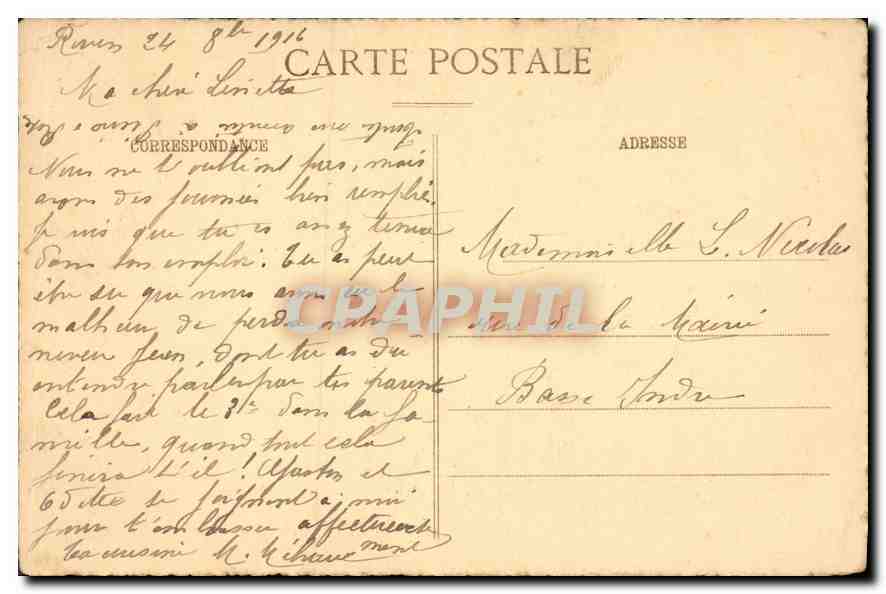 Rouen 24 8bre 1916
CARTE POSTALE
Ma chère Linette
CORRESPONDANCE
ADRESSE
Nous ne t'oublions pas, mais
avons des journées bien remplies.
Je vois que tu es assez tenue
dans ton emploi. Tu as peut
être su que nous avons eu le
malheur de perdre notre
neveu Jean, dont tu as dû
entendre parler par tes parents
Cela fait le 3e dans la fa-
mille, quand tout cela
finira t'il ! Gaston et
Odette se joignent à moi
pour t'embrasser affectueuse
ment
Ta cousine M.
Mademoiselle L. Nicolas
rue de la Mairie
Basse Indre
CPAPHIL